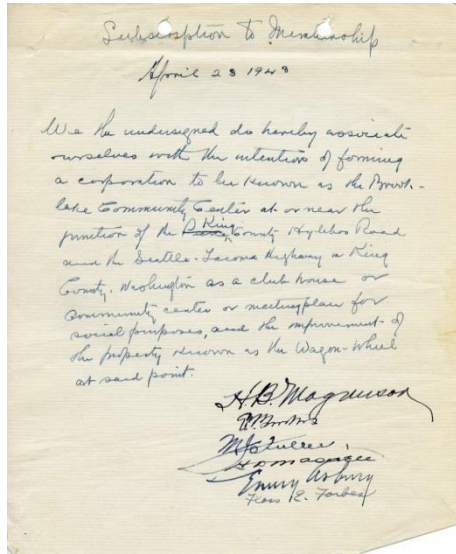 Subscription to Membership
April 23 1943
We the undersigned do hereby associate
ourselves with the intention of forming
a corporation to be known as the Brook-
lake Community Center at or near the
junction of the King County Hylebos Road
and the Seattle-Tacoma Highway in King
County, Washington as a club house or
community center or meeting place for
social purposes, and the improvement of
the property known as the Wagon-Wheel
at said point.
H.B. Magnuson
Emery Asbury
E. Forbes